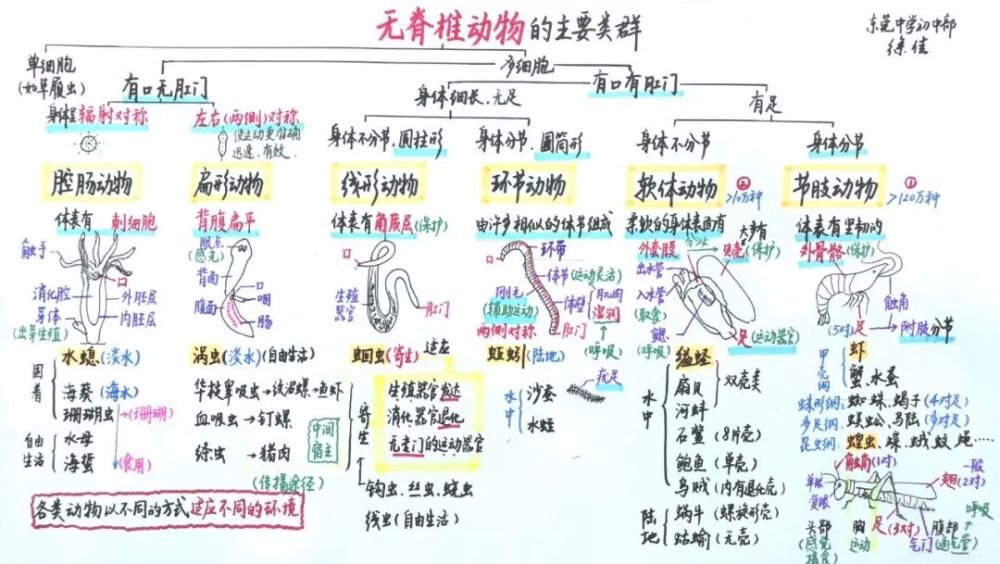 无脊椎动物的主要类群
东莞中学初中部
徐佳
单细胞
(如草履虫)
多细胞
有口无肛门
有口有肛门
身体呈辐射对称
左右(两侧)对称
使运动更准确
迅速、有效.
身体细长,无足
有足
身体不分节,圆柱形
身体分节,圆筒形
身体不分节
身体分节
腔肠动物
扁形动物
线形动物
环节动物
软体动物
② >10万种
节肢动物
① >120万种
体表有刺细胞
触手
口
消化腔
芽体
(出芽生殖)
外胚层
内胚层
水螅(淡水)
固着
海葵(海水)
珊瑚虫→(珊瑚)
自由生活
水母
海蜇
(食用)
背腹扁平
眼点
(感光)
背面
腹面
口
咽
肠
涡虫(淡水)(自由生活)
华枝睾吸虫→纹沼螺→鱼虾
血吸虫→钉螺
绦虫→猪肉
中间宿主
(传播途径)
体表有角质层(保护)
口
生殖器官
肛门
蛔虫(寄生)
适应
寄生
生殖器官发达
消化器官退化
无专门的运动器官
钩虫、丝虫、蛲虫
线虫(自由生活)
由许多相似的体节组成
口
环带
体节(运动灵活)
刚毛
(辅助运动)
体壁
肌肉
湿润
(呼吸)
两侧对称
肛门
蚯蚓(陆地)
水中
沙蚕
水蛭
疣足
柔软的身体表面有
外套膜
分泌
大多有
贝壳(保护)
出水管
入水管
(取食)
鳃
(呼吸)
足(运动器官)
缢蛏
水中
扇贝
河蚌
双壳类
石鳖(8片壳)
鲍鱼(单壳)
乌贼(内有退化壳)
陆地
蜗牛(螺旋形壳)
蛞蝓(无壳)
体表有坚韧的
外骨骼(保护)
触角
(5对)足
附肢分节
甲壳纲
虾
蟹、水蚤
蛛形纲:蜘蛛、蝎子(4对足)
多足纲:蜈蚣、马陆(多对足)
昆虫纲:蝗虫、蝶、蛾、蚊、蝇……
触角(1对)
单眼
复眼
一般
翅(2对)
头部
(感觉摄食)
胸
运动
足(3对)
腹部
气门(通气管)
呼吸
各类动物以不同的方式适应不同的环境